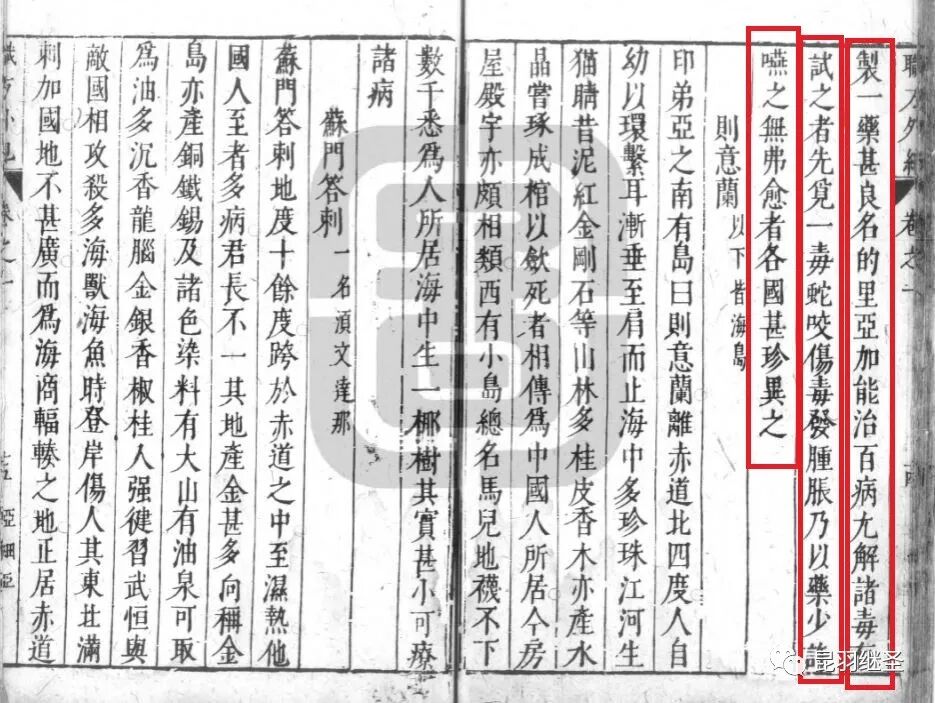 職方外紀 卷之一
製一藥甚良名的里亞加能治百病尤解諸毒
試之者先覓一毒蛇咬傷毒發腫脹乃以藥少許
嚥之無弗愈者各國甚珍異之
則意蘭 以下皆海島
印弟亞之南有島曰則意蘭離赤道北四度人自
幼以環繫耳漸垂至肩而止海中多珍珠江河生
猫睛昔泥紅金剛石等山林多桂皮香木亦產水
晶嘗琢成棺以歛死者相傳為中國人所居今房
屋殿宇亦頗相類西有小島總名馬兒地襪不下
數千悉為人所居海中生一椰樹其實甚小可療
諸病
蘇門答剌 一名須文達那
蘇門答剌地度十餘度跨於赤道之中至濕熱他
國人至者多病君長不一其地產金甚多向稱金
島亦產銅鐵錫及諸色染料有大山有油泉可取
為油多沉香龍腦金銀香椒桂人强健習武恒與
敵國相攻殺多海獸海魚時登岸傷人其東北滿
剌加國地不甚廣而為海商輻輳之地正居赤道
職方外紀 卷之一
昆羽继圣